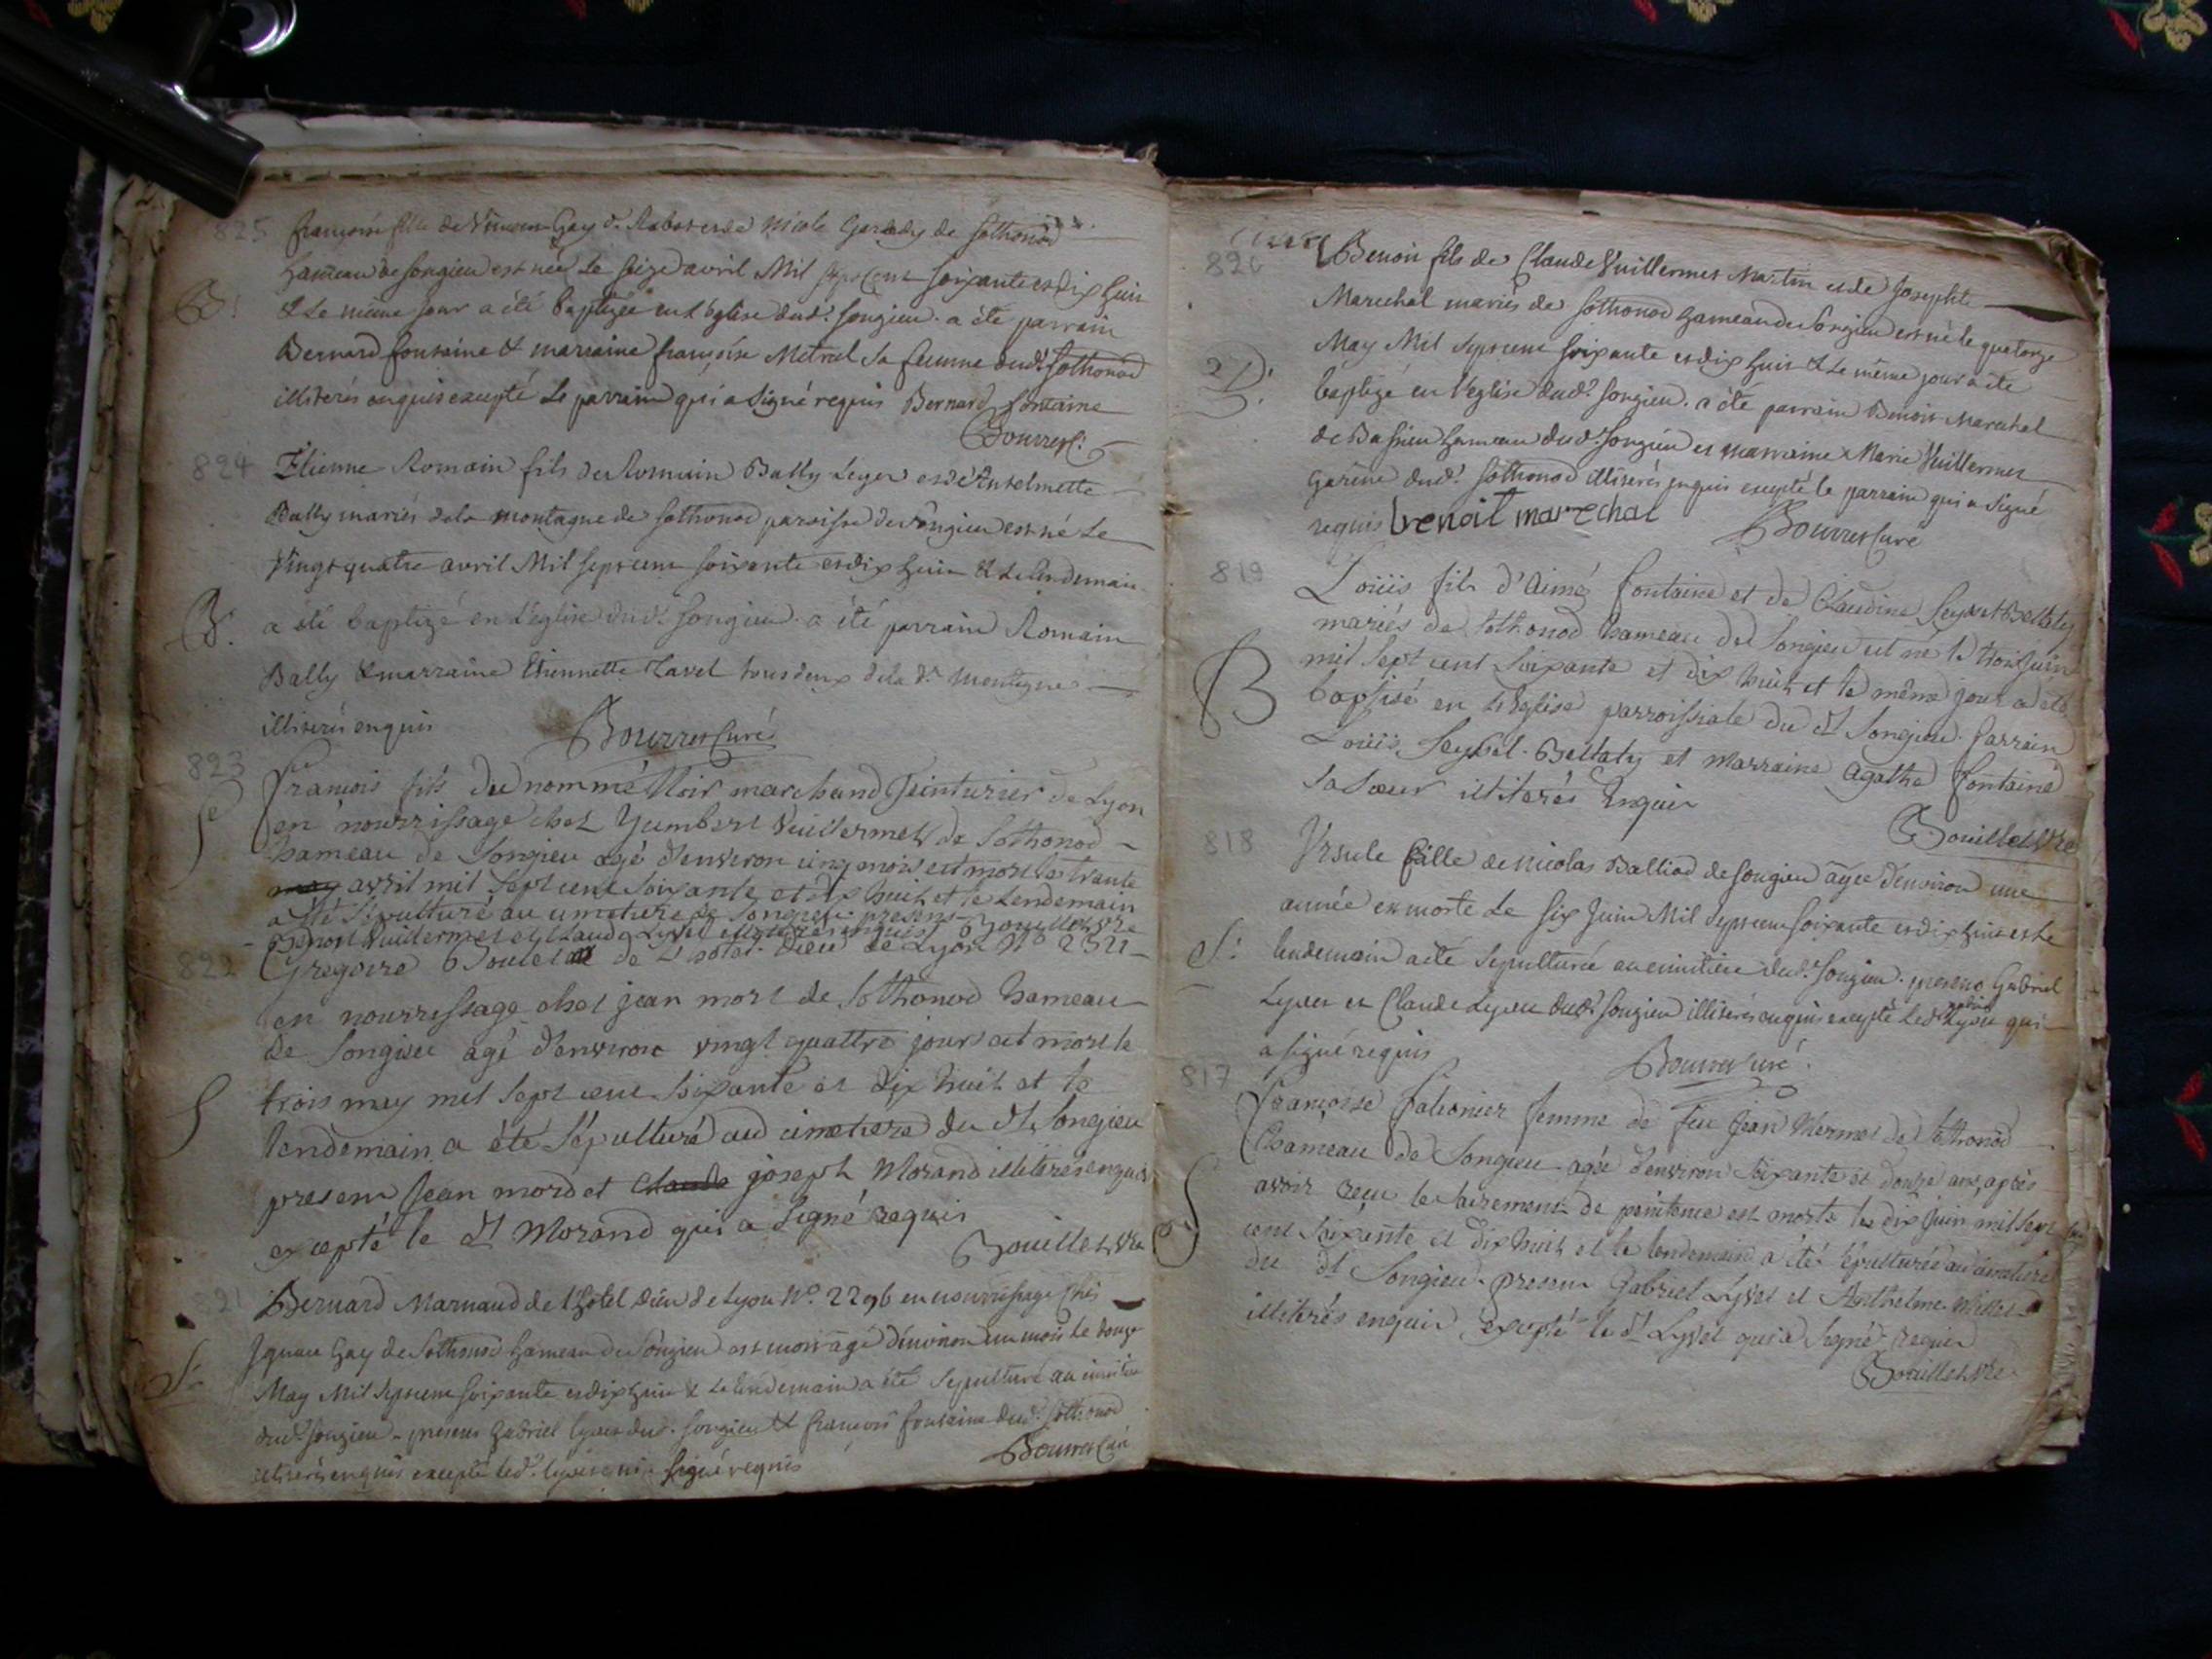 825
françoise fille de Vincent Gay d. Rabot et de Nicole Garady de Sothonod
hameau de Songieu est née le seize avril Mil sept cent soixante et dix huit
B.
& le même jour a été baptizée en l'église dud. Songieu. a été parrain
Bernard fontaine & marraine françoise Métral sa femme dud. Sothonod
illiterés enquis excepté le parrain qui a signé requis Bernard fontaine
Bourret C.
824
Etienne Romain fils de Romain Bally Leger et d'Antelmette
Bally mariés dela montagne de Sothonod paroisse de Songieu est né le
vingt quatre avril Mil sept cent soixante et dix huit & le lendemain
B.
a été baptizé en l'église dud. Songieu. a été parrain Romain
Bally & marraine Etiennette Tavel tous deux dela d. montagne
illiterés enquis
Bourret Curé
823
S
françois fils du nommé Noir marchand Teinturier de Lyon
en nourrissage chez humbert Vuillermet de Sothonod
hameau de Songieu agé d'environ cinq mois est mort le trante
may avril mil sept cent soixante et dix huit et le lendemain
a été sépulturé au cimetiere de Songieu. presens
Benoit Vuillermet et Claude Lyvet illiterés enquis Bouillet Vre
822
Gregoire Boulet de L'hotel Dieu de Lyon N° 2321
en nourressage chez jean mort de Sothonod hameau
de Songieu agé d'environ vingt quattre jours est mort le
S
trois may mil sept cent soixante et dix huit et le
lendemain a été sépulturé au cimetiere du dt Songieu
presens Jean mord et Claude joseph Morand illiterés enquis
excepté le dt Morand qui a signé requis
Bouillet Vre
821
Bernard Marnaud de l'hôtel dieu de Lyon N°. 2296 en nourrissage chés
Ignace Gay de Sothonod hameau de Songieu est mort agé d'environ un mois le douze
S.
May Mil sept cent soixante et dix huit & le lendemain a été sepulturé au cimitiere
dud. Songieu - presens Gabriel Lyvet dud. Songieu & françois fontaine dud. Sothonod
illiterés enquis excepté led. Lyvet qui a signé requis
Bourret Curé
820
Benoit fils de Claude Vuillermet Martin et de Josephte
Marechal mariés de Sothonod hameau de Songieu est né le quatorze
May Mil sept cent soixante et dix huit & le même jour a été
B.
baptizé en l'eglise dud. Songieu. a été parrain Benoit Marechal
de Bassieu hameau dud. Songieu et marraine Marie Vuillermet
Garine dud. Sothonod illiterés enquis excepté le parrain qui a signé
requis benoit marechal Bourret Curé
819
Loüis fils d'Aimé fontaine et de Claudine Seyset Bellaty
mariés de Sothonod hameau de Songieu est né le trois Juin
mil sept cent soixante et dix huit et le même jour a été
B
baptisé en L'église parroissiale du dt Songieu. parrain
Loüis Seyset-Bellaty et marraine Agathe fontaine
sa sœur illiterés Enquis
Bouillet Vre
818
Vrsule fille de Nicolas Balliod de Songieu agée d'environ une
année est morte le six Juin Mil sept cent soixante et dix huit et le
S.
lendemain a été sepulturée au cimitiere dud. Songieu. presens Gabriel
Lyvet et Claude Lyvet dud. Songieu illiterés enquis excepté led. gabriel Lyvet qui
a signé requis
Bourret Curé.
817
françoise falconier femme de feu Jean Mermet de Sothonod
hameau de Songieu agée d'environ soixante et douze ans, après
avoir reçu le sacrement de penitence est morte le dix Juin mil sept
S
cent soixante et dix huit et le lendemain a été sépulturée au cimetiere
du dt Songieu. presens Gabriel Lyvet et Anthelme Millet
illiterés enquis, excepté le dt Lyvet qui a signé requis
Bouillet Vre